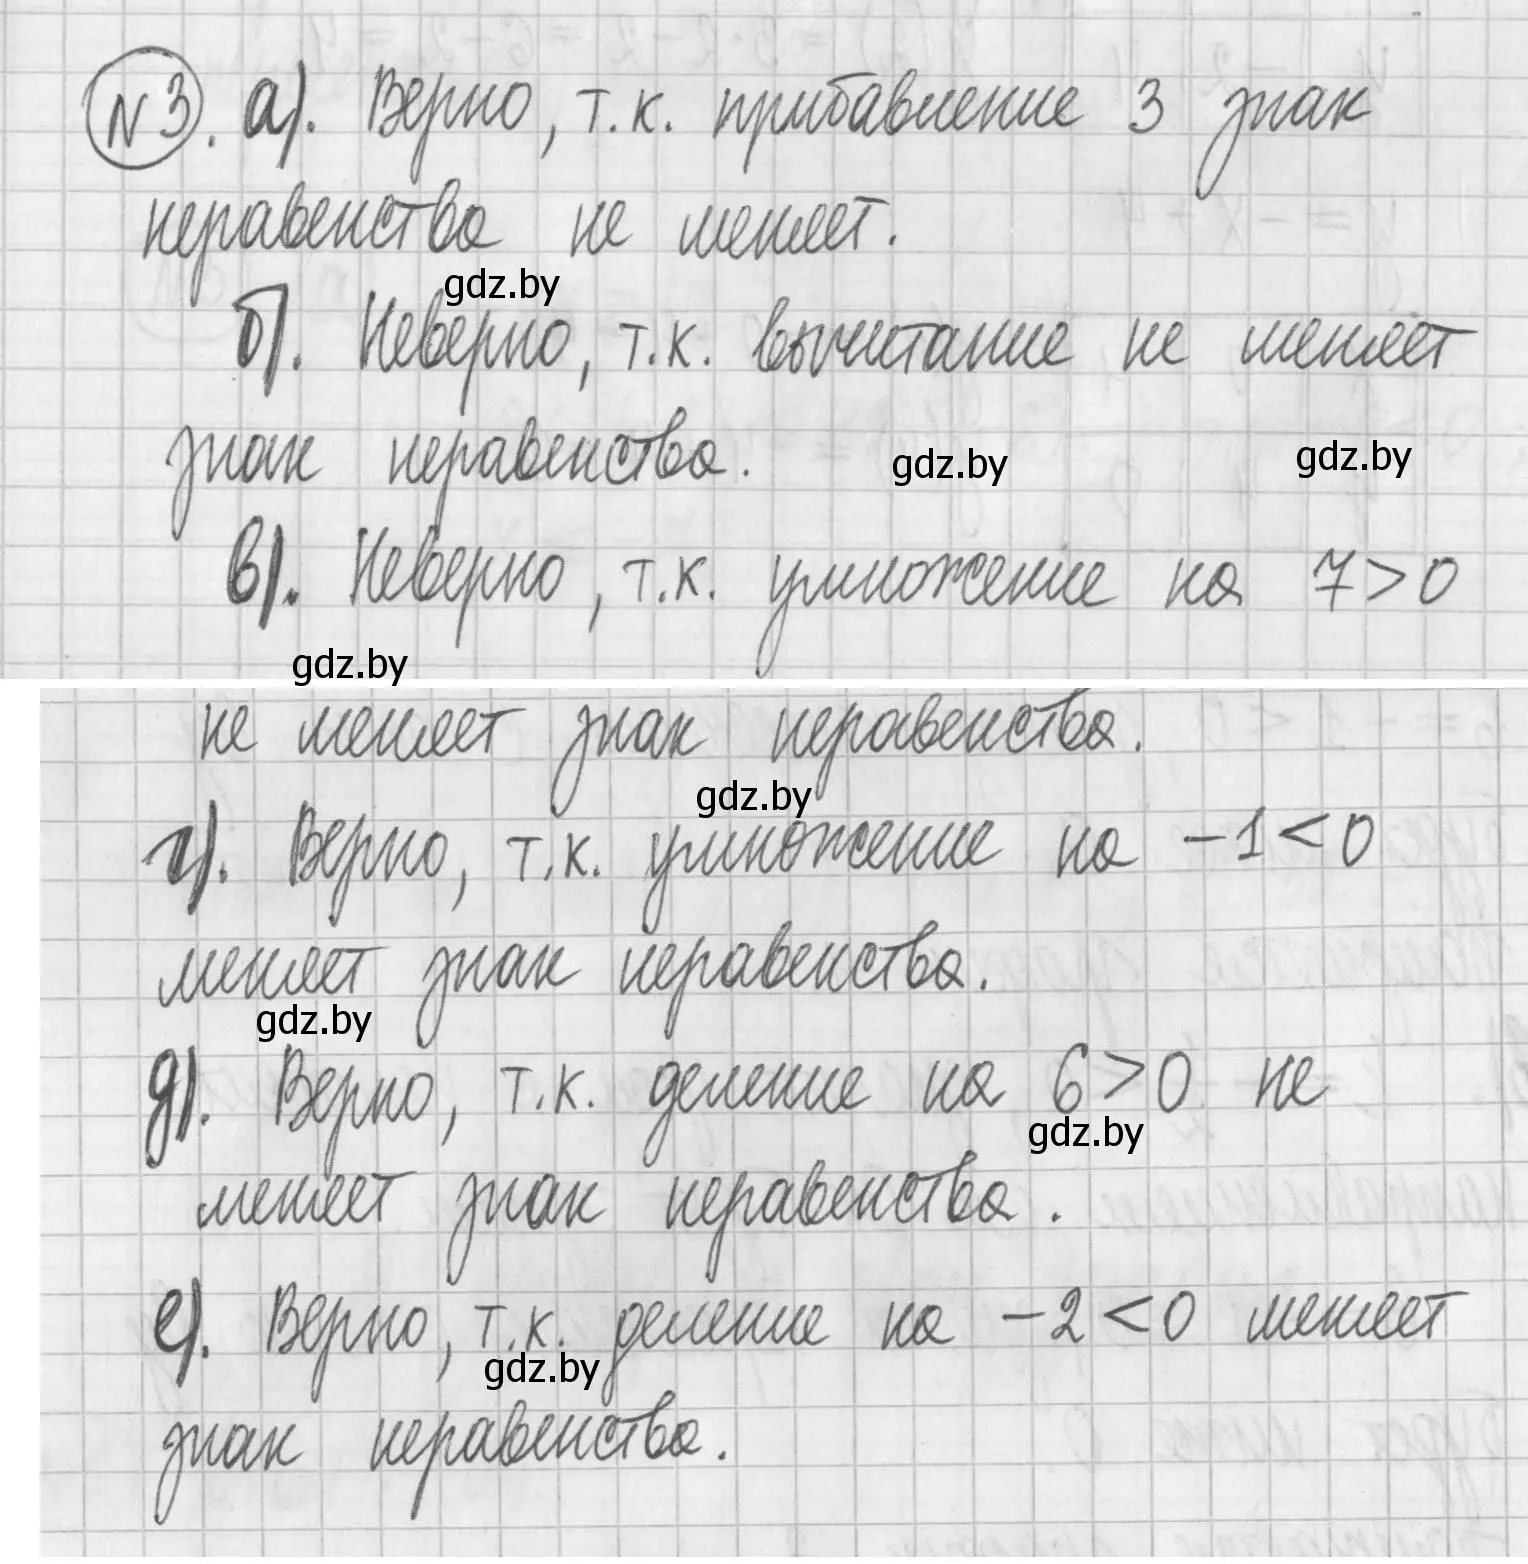 №3. а). Верно, т.к. прибавление 3 знак
неравенства не меняет.
gdz.by
б). Неверно, т.к. вычитание не меняет
знак неравенства.
gdz.by
gdz.by
в). Неверно, т.к. умножение на 7>0
gdz.by
не меняет знак неравенства.
gdz.by
г). Верно, т.к. умножение на -1<0
меняет знак неравенства.
gdz.by
д). Верно, т.к. деление на 6>0 не
gdz.by
меняет знак неравенства.
е). Верно, т.к. деление на -2<0 меняет
gdz.by
знак неравенства.